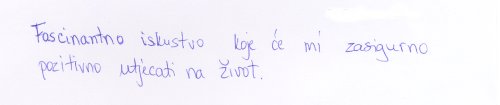 Fascinantno iskustvo koje će mi zasigurno
pozitivno utjecati na život.